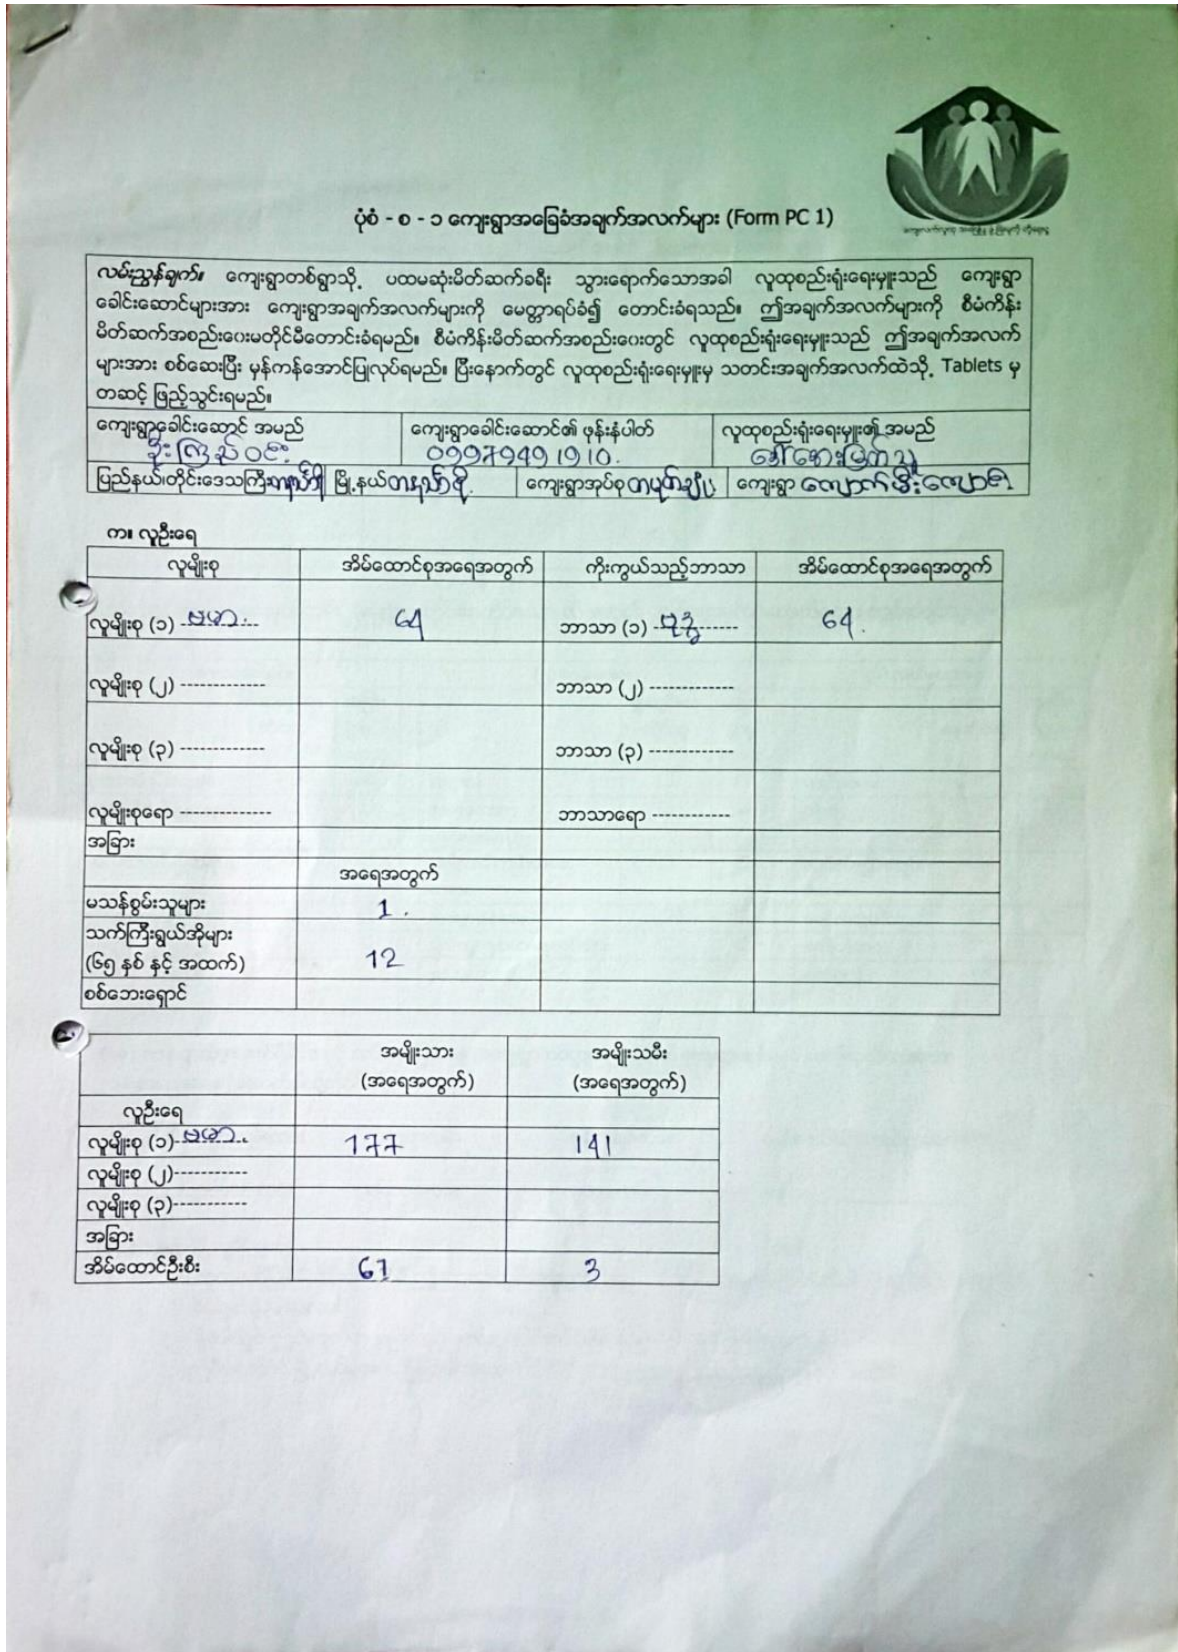 ပုံစံ - စ - ၁ ကျေးရွာအခြေခံအချက်အလက်များ (Form PC 1)
လမ်းညွှန်ချက်။ ကျေးရွာတစ်ရွာသို့ ပထမဆုံးမိတ်ဆက်ခရီး သွားရောက်သောအခါ လူထုစည်းရုံးရေးမှူးသည် ကျေးရွာ
ခေါင်းဆောင်များအား ကျေးရွာအချက်အလက်များကို မေတ္တာရပ်ခံ၍ တောင်းခံရသည်။ ဤအချက်အလက်များကို စီမံကိန်း
မိတ်ဆက်အစည်းဝေးမတိုင်မီတောင်းခံရမည်။ စီမံကိန်းမိတ်ဆက်အစည်းဝေးတွင် လူထုစည်းရုံးရေးမှူးသည် ဤအချက်အလက်
များအား စစ်ဆေးပြီး မှန်ကန်အောင်ပြုလုပ်ရမည်။ ပြီးနောက်တွင် လူထုစည်းရုံးရေးမှူးမှ သတင်းအချက်အလက်ထဲသို့ Tablets မှ
တဆင့် ဖြည့်သွင်းရမည်။
ကျေးရွာခေါင်းဆောင် အမည် ကျေးရွာခေါင်းဆောင်၏ ဖုန်းနံပါတ် လူထုစည်းရုံးရေးမှူး၏ အမည်
ဦးကြည်ဝင်း 09979491910.
ပြည်နယ်၊တိုင်းဒေသကြီး မြို့နယ် ကျေးရွာအုပ်စု ကျေးရွာ
က။ လူဦးရေ
လူမျိုးစု အိမ်ထောင်စုအရေအတွက် ကိုးကွယ်သည့်ဘာသာ အိမ်ထောင်စုအရေအတွက်
လူမျိုးစု (၁) ဗမာ 64 ဘာသာ (၁) ဗုဒ္ဓ 64.
လူမျိုးစု (၂) ------------- ဘာသာ (၂) -------------
လူမျိုးစု (၃) ------------- ဘာသာ (၃) -------------
လူမျိုးစုရော -------------- ဘာသာရော ------------
အခြား
အရေအတွက်
မသန်စွမ်းသူများ 1.
သက်ကြီးရွယ်အိုများ
(၆၅ နှစ် နှင့် အထက်) 12
စစ်ဘေးရှောင်
အမျိုးသား အမျိုးသမီး
(အရေအတွက်) (အရေအတွက်)
လူဦးရေ
လူမျိုးစု (၁) ဗမာ 177 141
လူမျိုးစု (၂)-----------
လူမျိုးစု (၃)-----------
အခြား
အိမ်ထောင်ဦးစီး 61 3